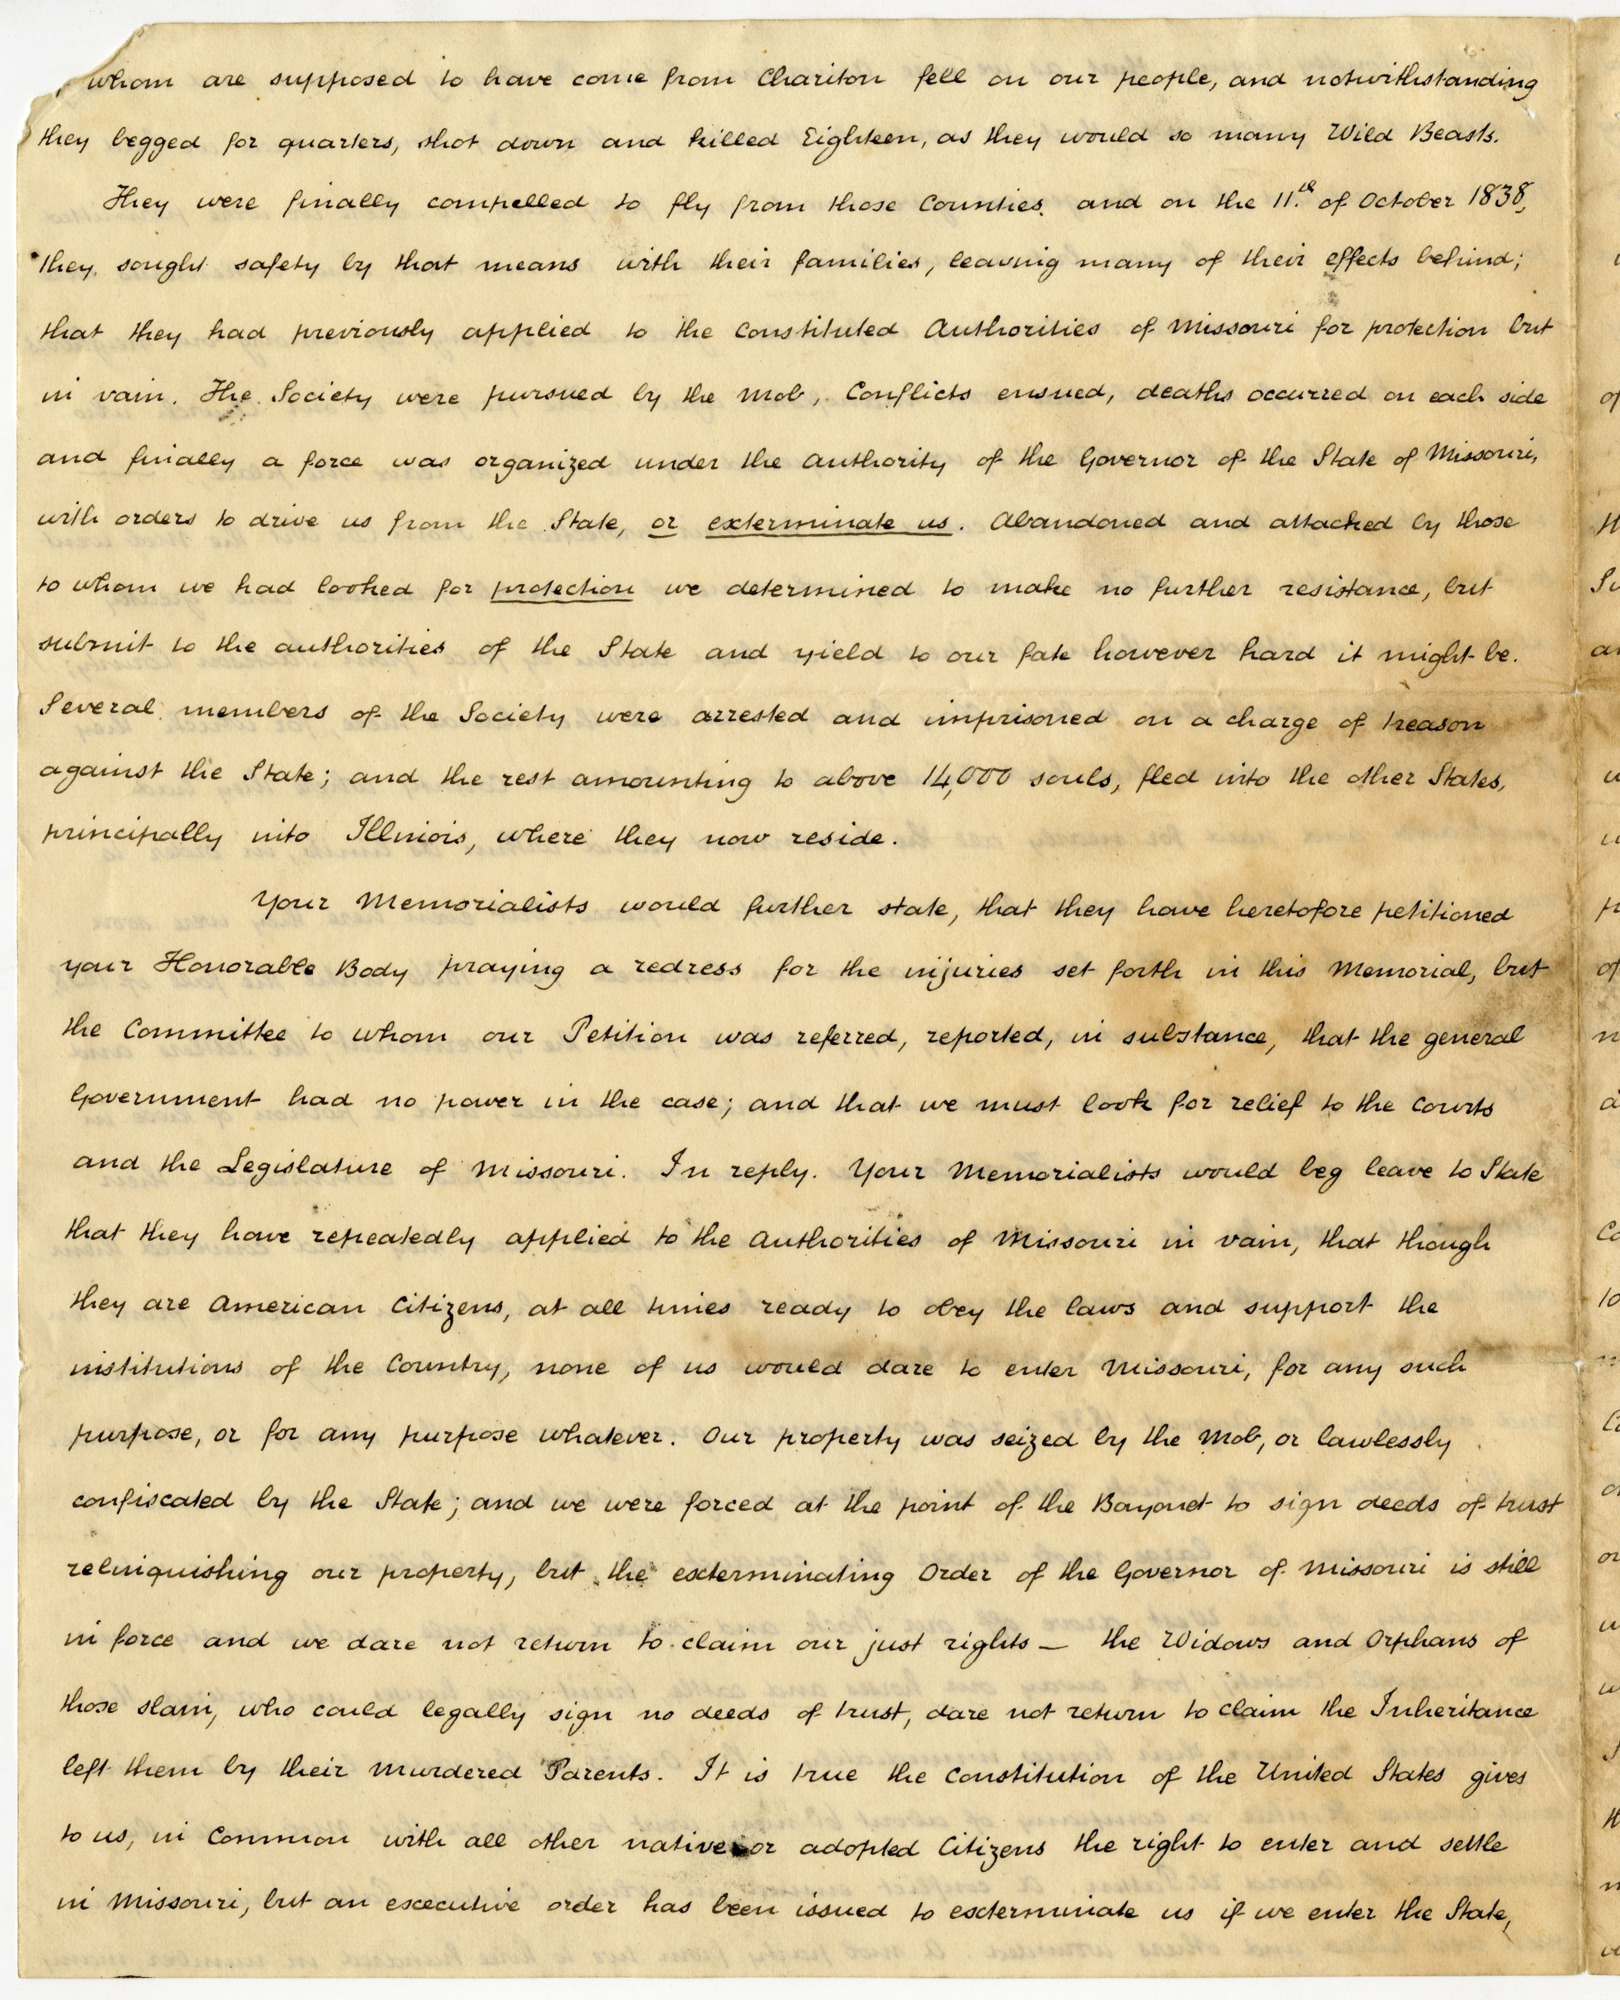 whom are supposed to have come from Chariton fell on our people, and notwithstanding
they begged for quarters, shot down and killed Eighteen, as they would so many Wild Beasts.
They were finally compelled to fly from those Counties, and on the 11.th of October 1838,
they, sought safety by that means with their families, leaving many of their effects behind;
that they had previously applied to the constituted Authorities of Missouri for protection but
in vain. The Society were pursued by the Mob, Conflicts ensued, deaths occurred on each side
and finally a force was organized under the Authority of the Governor of the State of Missouri,
with orders to drive us from the State, or exterminate us. Abandoned and attacked by those
to whom we had looked for protection we determined to make no further resistance, but
submit to the authorities of the State and yield to our fate however hard it might be.
Several members of the Society were arrested and imprisoned on a charge of treason
against the State; and the rest amounting to above 14,000 souls, fled into the other States,
principally into Illinois, where they now reside.
Your Memorialists would further state, that they have heretofore petitioned
your Honorable Body praying a redress for the injuries set forth in this Memorial, but
the Committee to whom our Petition was referred, reported, in substance, that the general
Government had no power in the case; and that we must look for relief to the Courts
and the Legislature of Missouri. In reply. Your Memorialists would beg leave to State
that they have repeatedly applied to the Authorities of Missouri in vain, that though
they are American Citizens, at all times ready to obey the laws and support the
institutions of the Country, none of us would dare to enter Missouri, for any such
purpose, or for any purpose whatever. Our property was seized by the Mob, or lawlessly
confiscated by the State; and we were forced at the point of the Bayonet to sign deeds of trust
relinquishing our property, but the exterminating Order of the Governor of Missouri is still
in force and we dare not return to claim our just rights — the Widows and Orphans of
those slain, who could legally sign no deeds of trust, dare not return to claim the Inheritance
left them by their Murdered Parents. It is true the Constitution of the United States gives
to us, in Common with all other native or adopted Citizens the right to enter and settle
in Missouri, but an executive order has been issued to exterminate us if we enter the State,